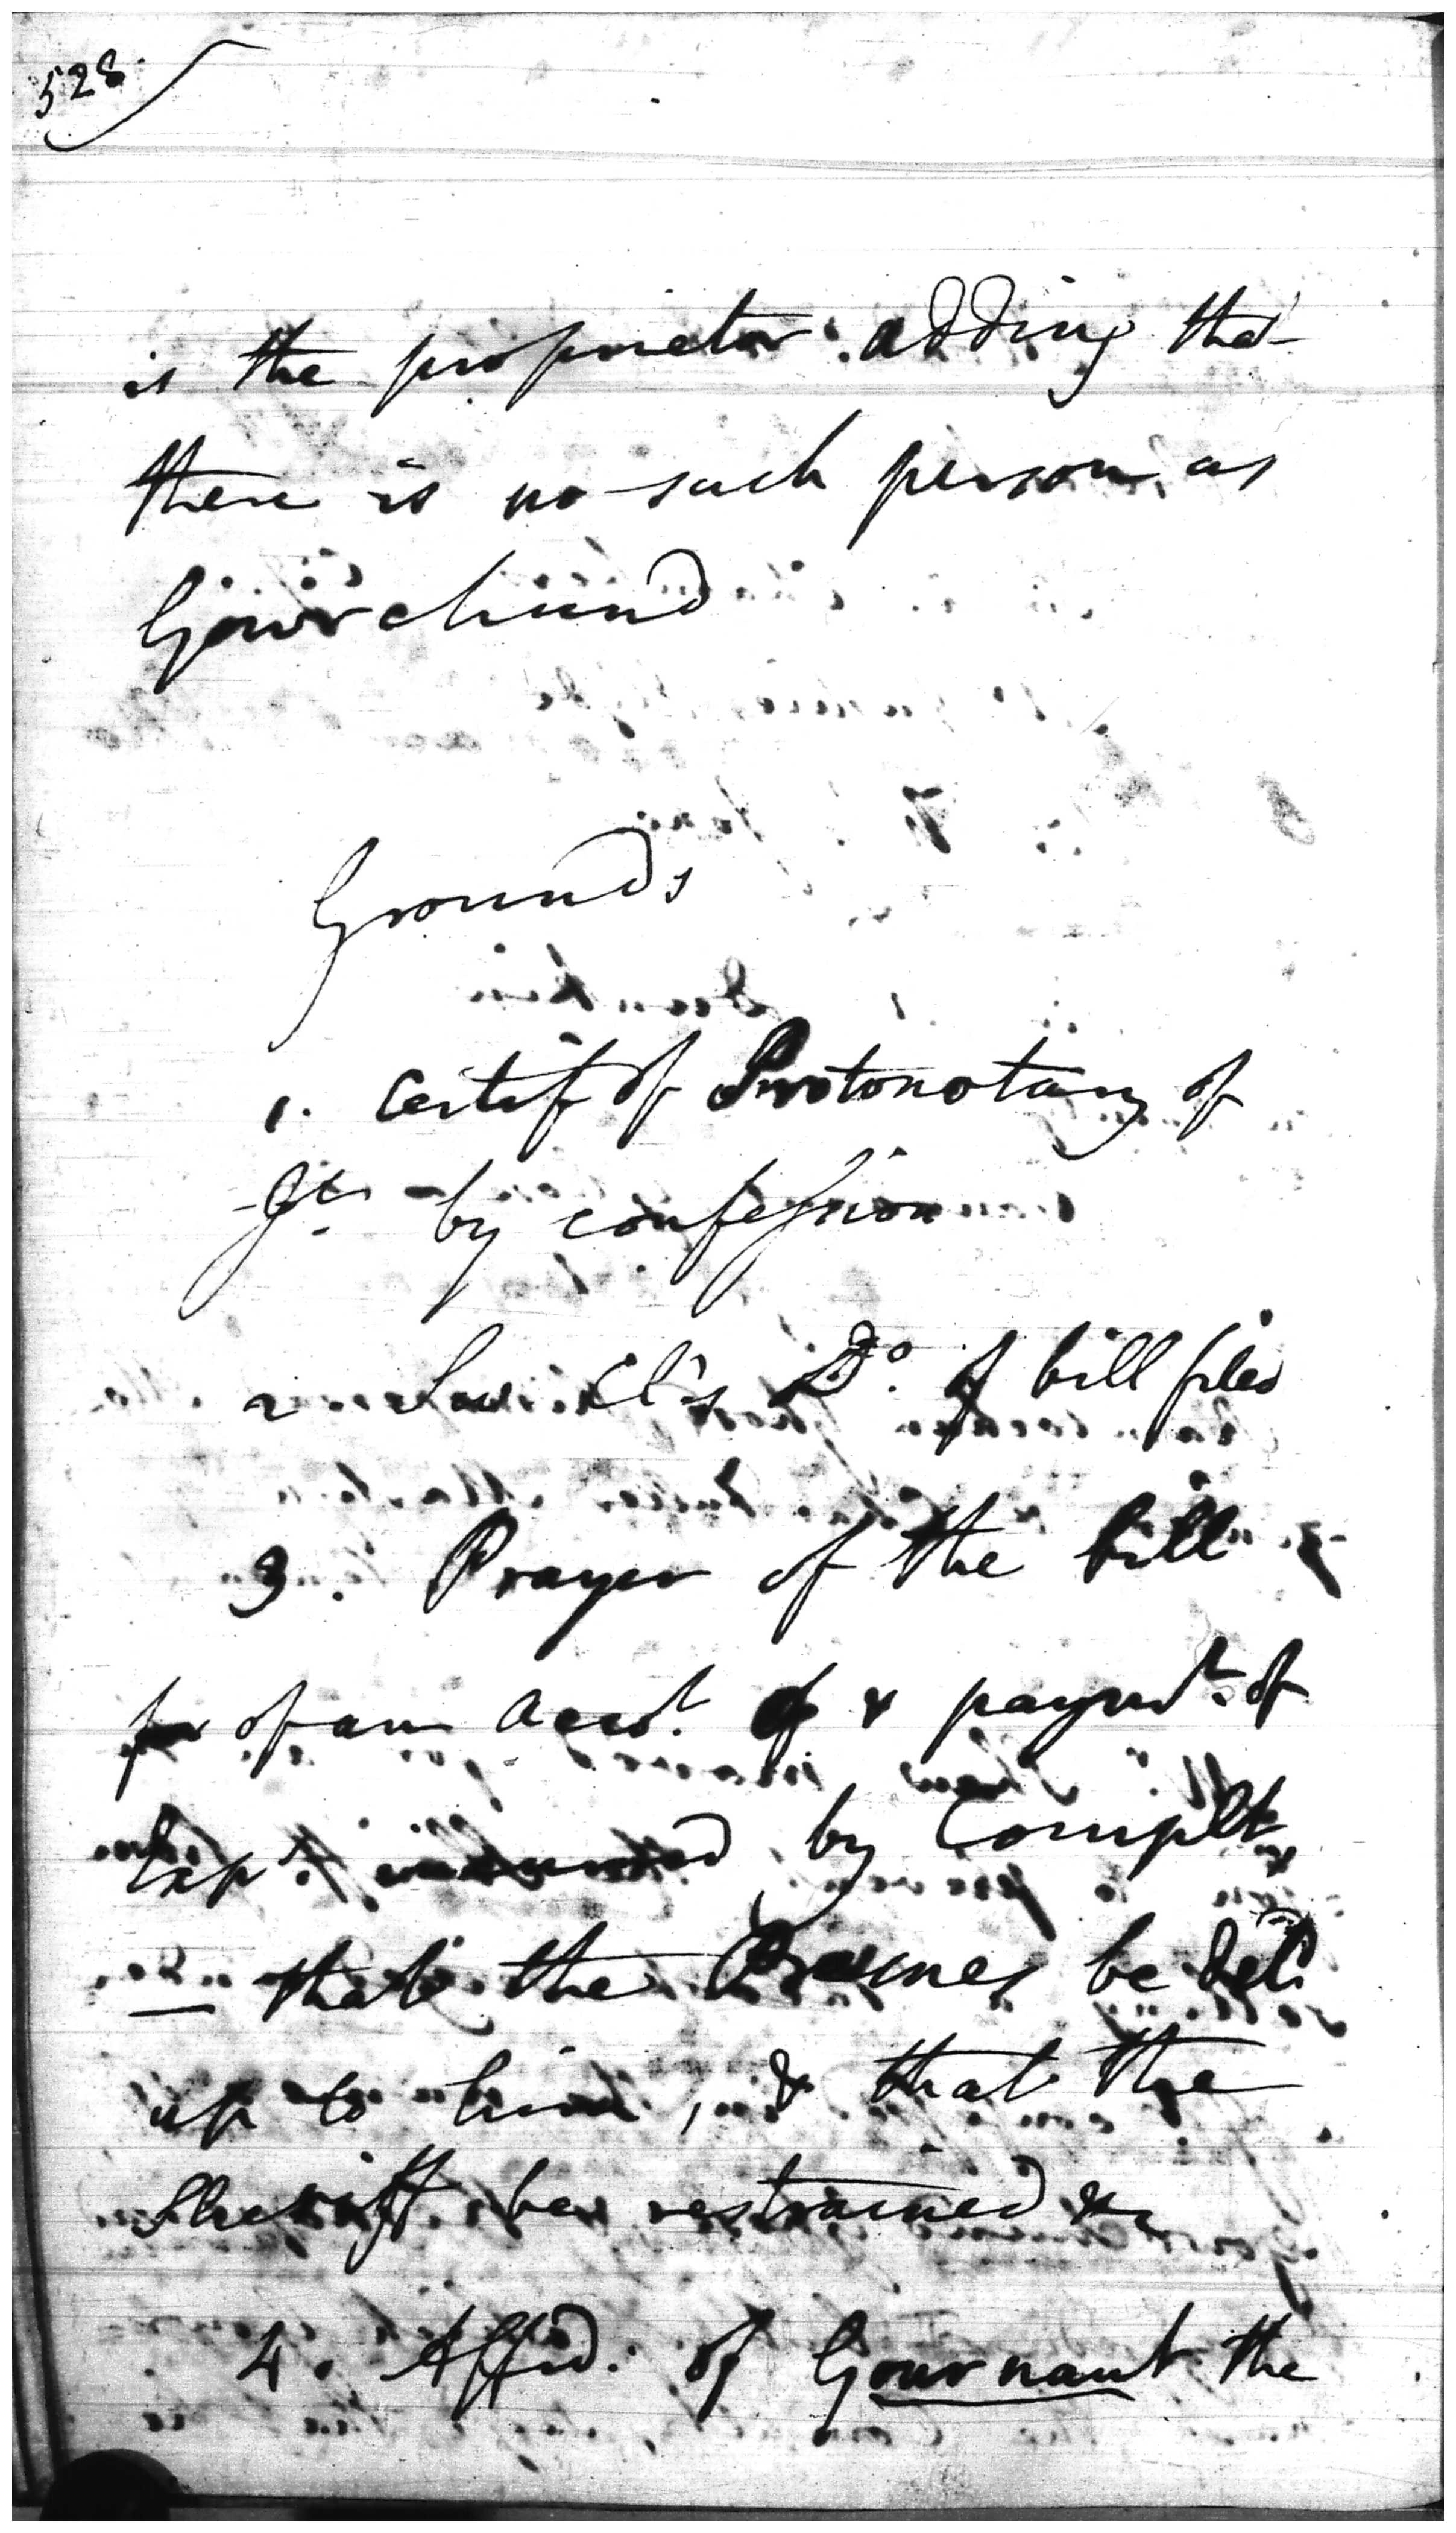 528
is the proprietor adding that
there is no such person as
Gourchund
Grounds
1. Certif of Protonotary of
Jt. by confession
2 Cl's Do. of bill filed
3. Prayer of the bill
for of an acct. of & paymt. of
Exp. by Complt
— that the Premes be deld
up to him, & that the
Sheriff be restrained &c
4. Affid. of Gournaut the